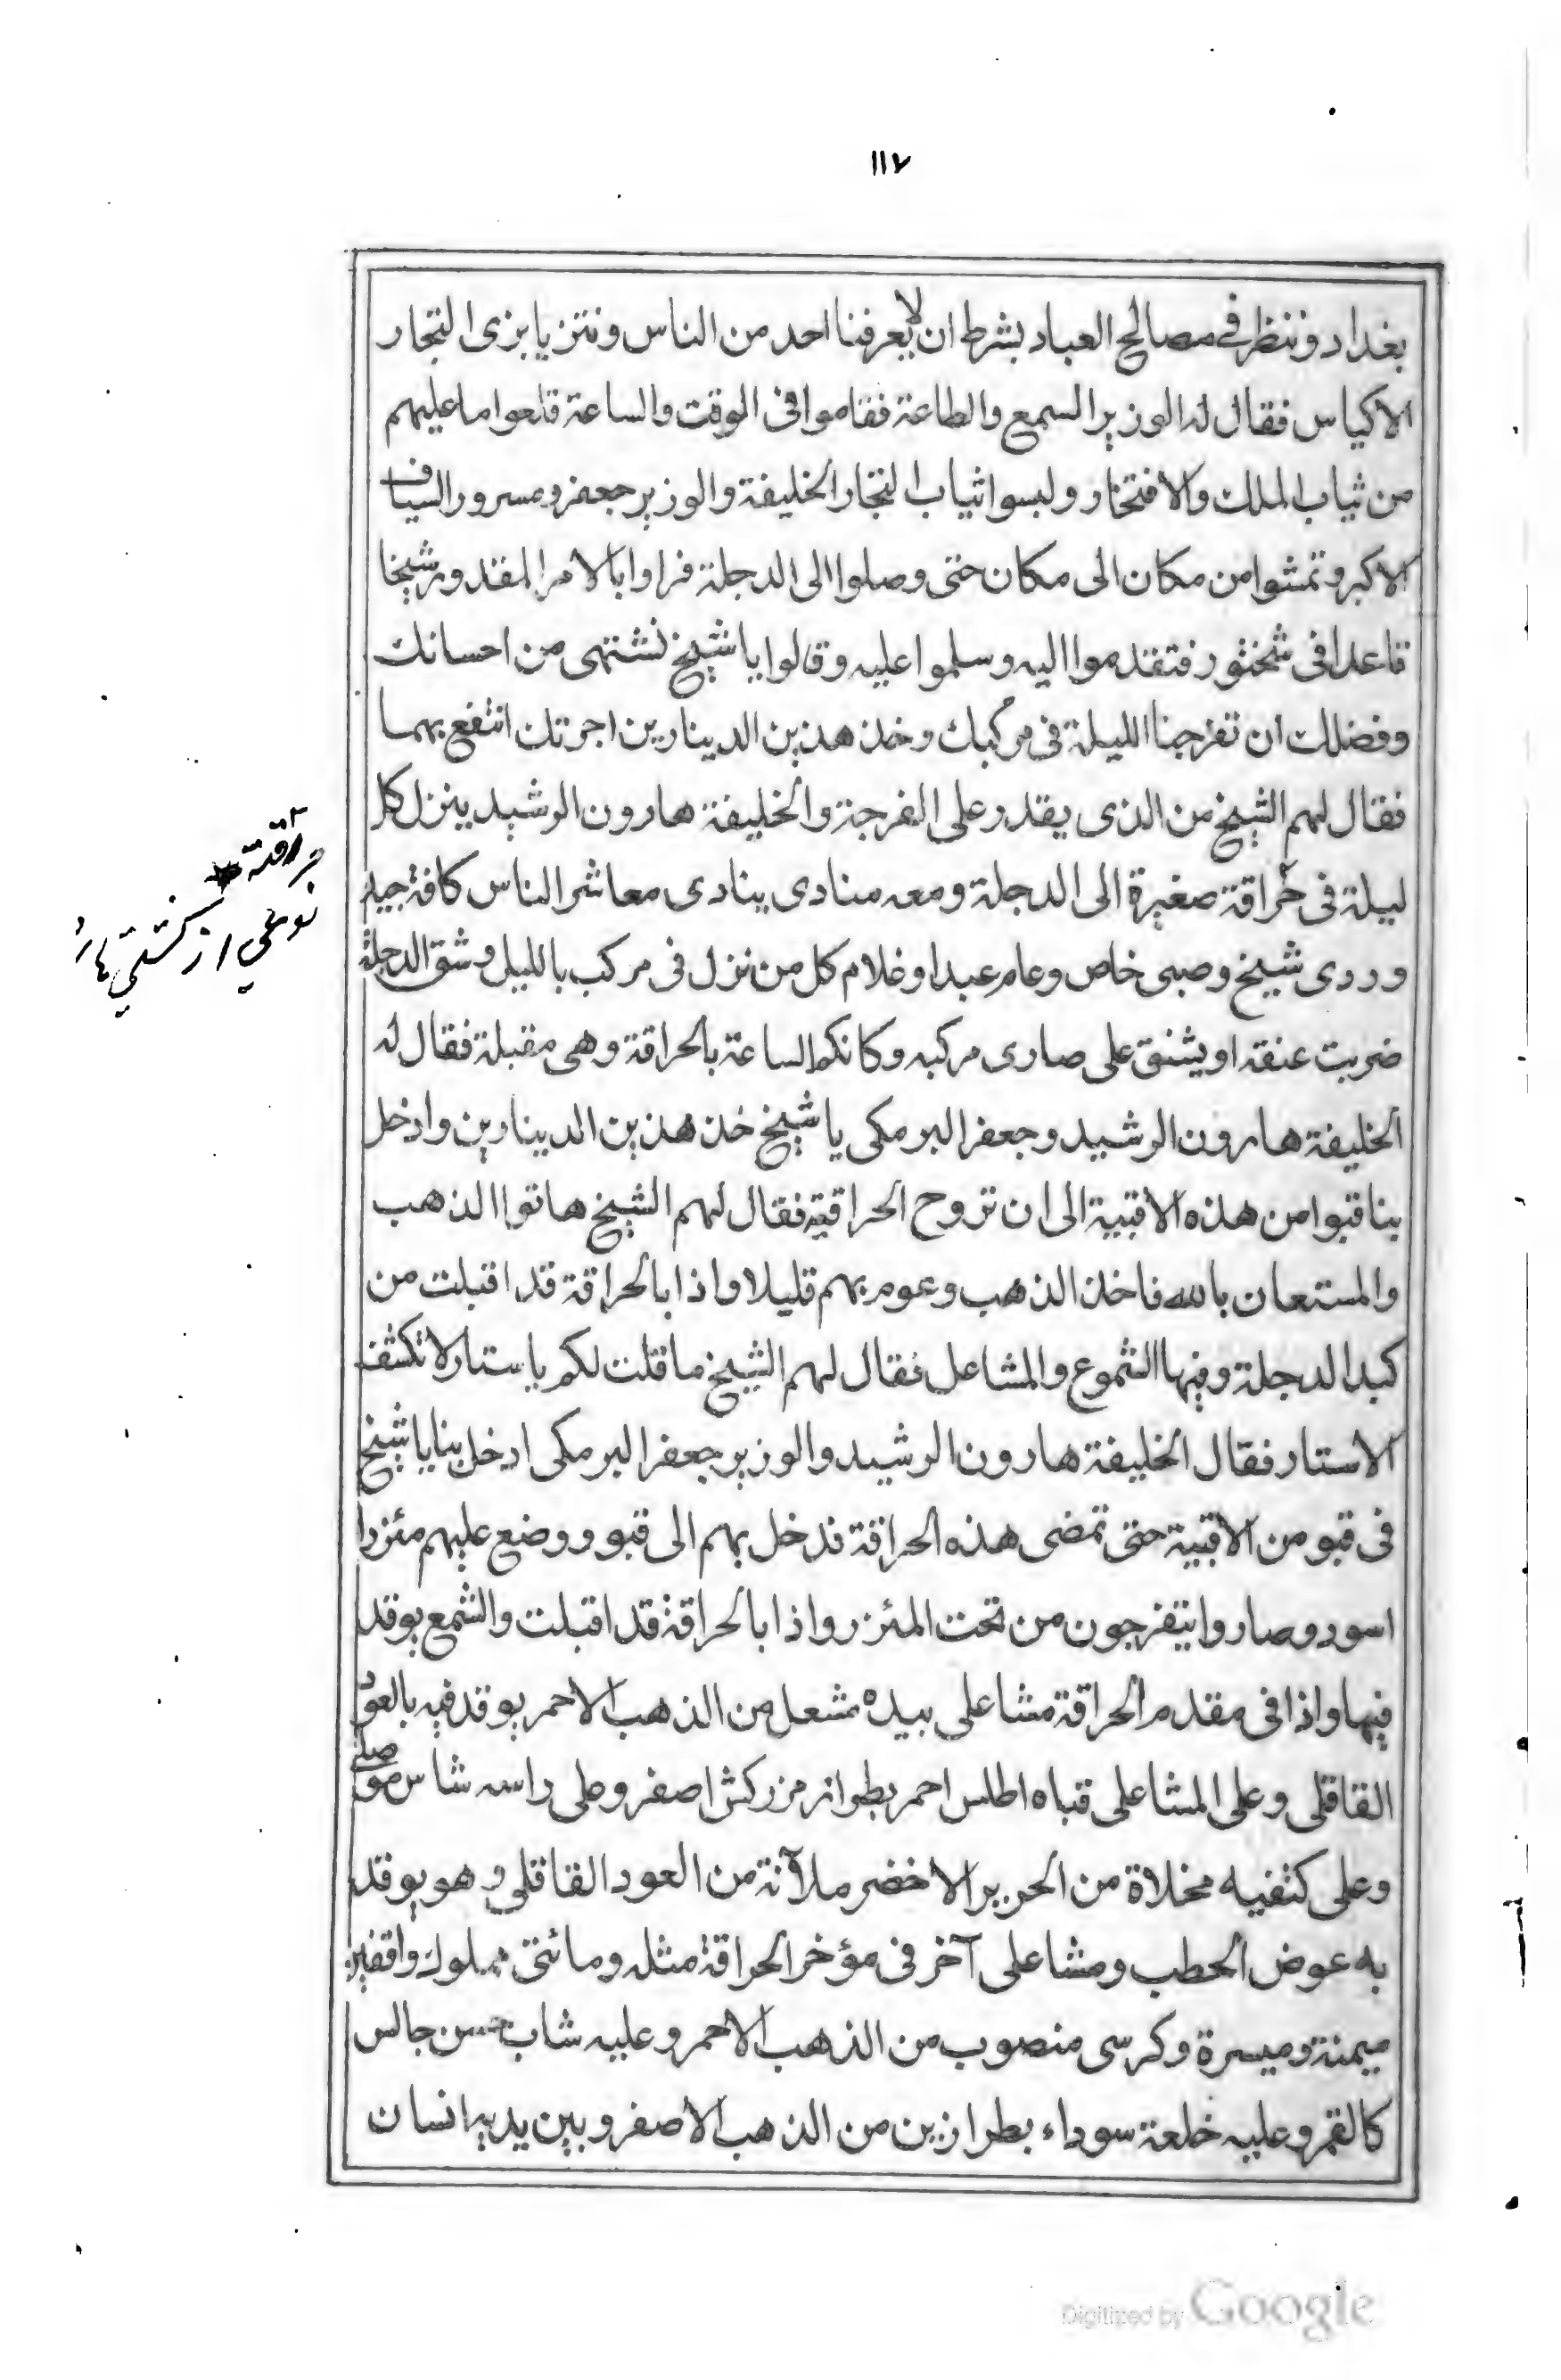 ١١٧
بغداد وننظر في مصالح العباد بشرط ان لا يعرفنا احد من الناس ونتزيا بزى التجار
الاكياس فقال له الوزير السمع والطاعة فقاموا فى الوقت والساعة قلعوا ما عليهم
من ثياب الملك والافتخار ولبسوا ثياب التجار الخليفة والوزير جعفر ومسرور السياف
الاكبر وتمشوا من مكان الى مكان حتى وصلوا الى الدجلة فراوا بالامر المقدور شيخا
قاعدا فى شخثور فتقدموا اليه وسلموا عليه وقالوا يا شيخ نشتهى من احسانك
وفضلك ان تفرجنا الليلة فى مركبك وخذ هذين الدينارين اجرتك انتفع بهما
فقال لهم الشيخ من الذى يقدر على الفرجة والخليفة هارون الرشيد ينزل كل
ليلة فى حراقة صغيرة الى الدجلة ومعه منادى ينادى معاشر الناس كافة جيد
وردى شيخ وصبى خاص وعام عبد او غلام كل من نزل فى مركب بالليل وشق الدجلة
ضربت عنقه او يشنق على صارى مركبه وكانكم الساعة بالحراقة وهى مقبلة فقال له
الخليفة هارون الرشيد وجعفر البرمكى يا شيخ خذ هذين الدينارين وادخل
بنا قبوا من هذه الاقبية الى ان تروح الحراقة فقال لهم الشيخ هاتوا الذهب
والمستعان بالله فاخذ الذهب وعوم بهم قليلا واذا بالحراقة قد اقبلت من
كبد الدجلة وفيها الشموع والمشاعل فقال لهم الشيخ ما قلت لكم يا ستار لا تكشف
الاستار فقال الخليفة هارون الرشيد والوزير جعفر البرمكى ادخل بنا يا شيخ
فى قبو من الاقبية حتى تمضى هذه الحراقة فدخل بهم الى قبو ووضع عليهم مئزرا
اسود وصاروا يتفرجون من تحت المئزر واذا بالحراقة قد اقبلت والشمع يوقد
فيها واذا فى مقدم الحراقة مشاعلى بيده مشعل من الذهب الاحمر يوقد فيه بالعود
القاقلى وعلى المشاعلى قباه اطلس احمر بطراز مزركش اصفر وعلى راسه شاس موصلى
وعلى كتفيه مخلاة من الحرير الاخضر ملآنة من العود القاقلى وهو يوقد
به عوض الحطب ومشاعلى آخر فى مؤخر الحراقة مثله ومائتى مملوك واقفين
ميمنة وميسرة وكرسى منصوب من الذهب الاحمر وعليه شاب حسن جالس
كالقمر وعليه خلعة سوداء بطرازين من الذهب الاصفر وبين يديه انسان
حراقة
نوعي از كشتي ها
Digitized by Google